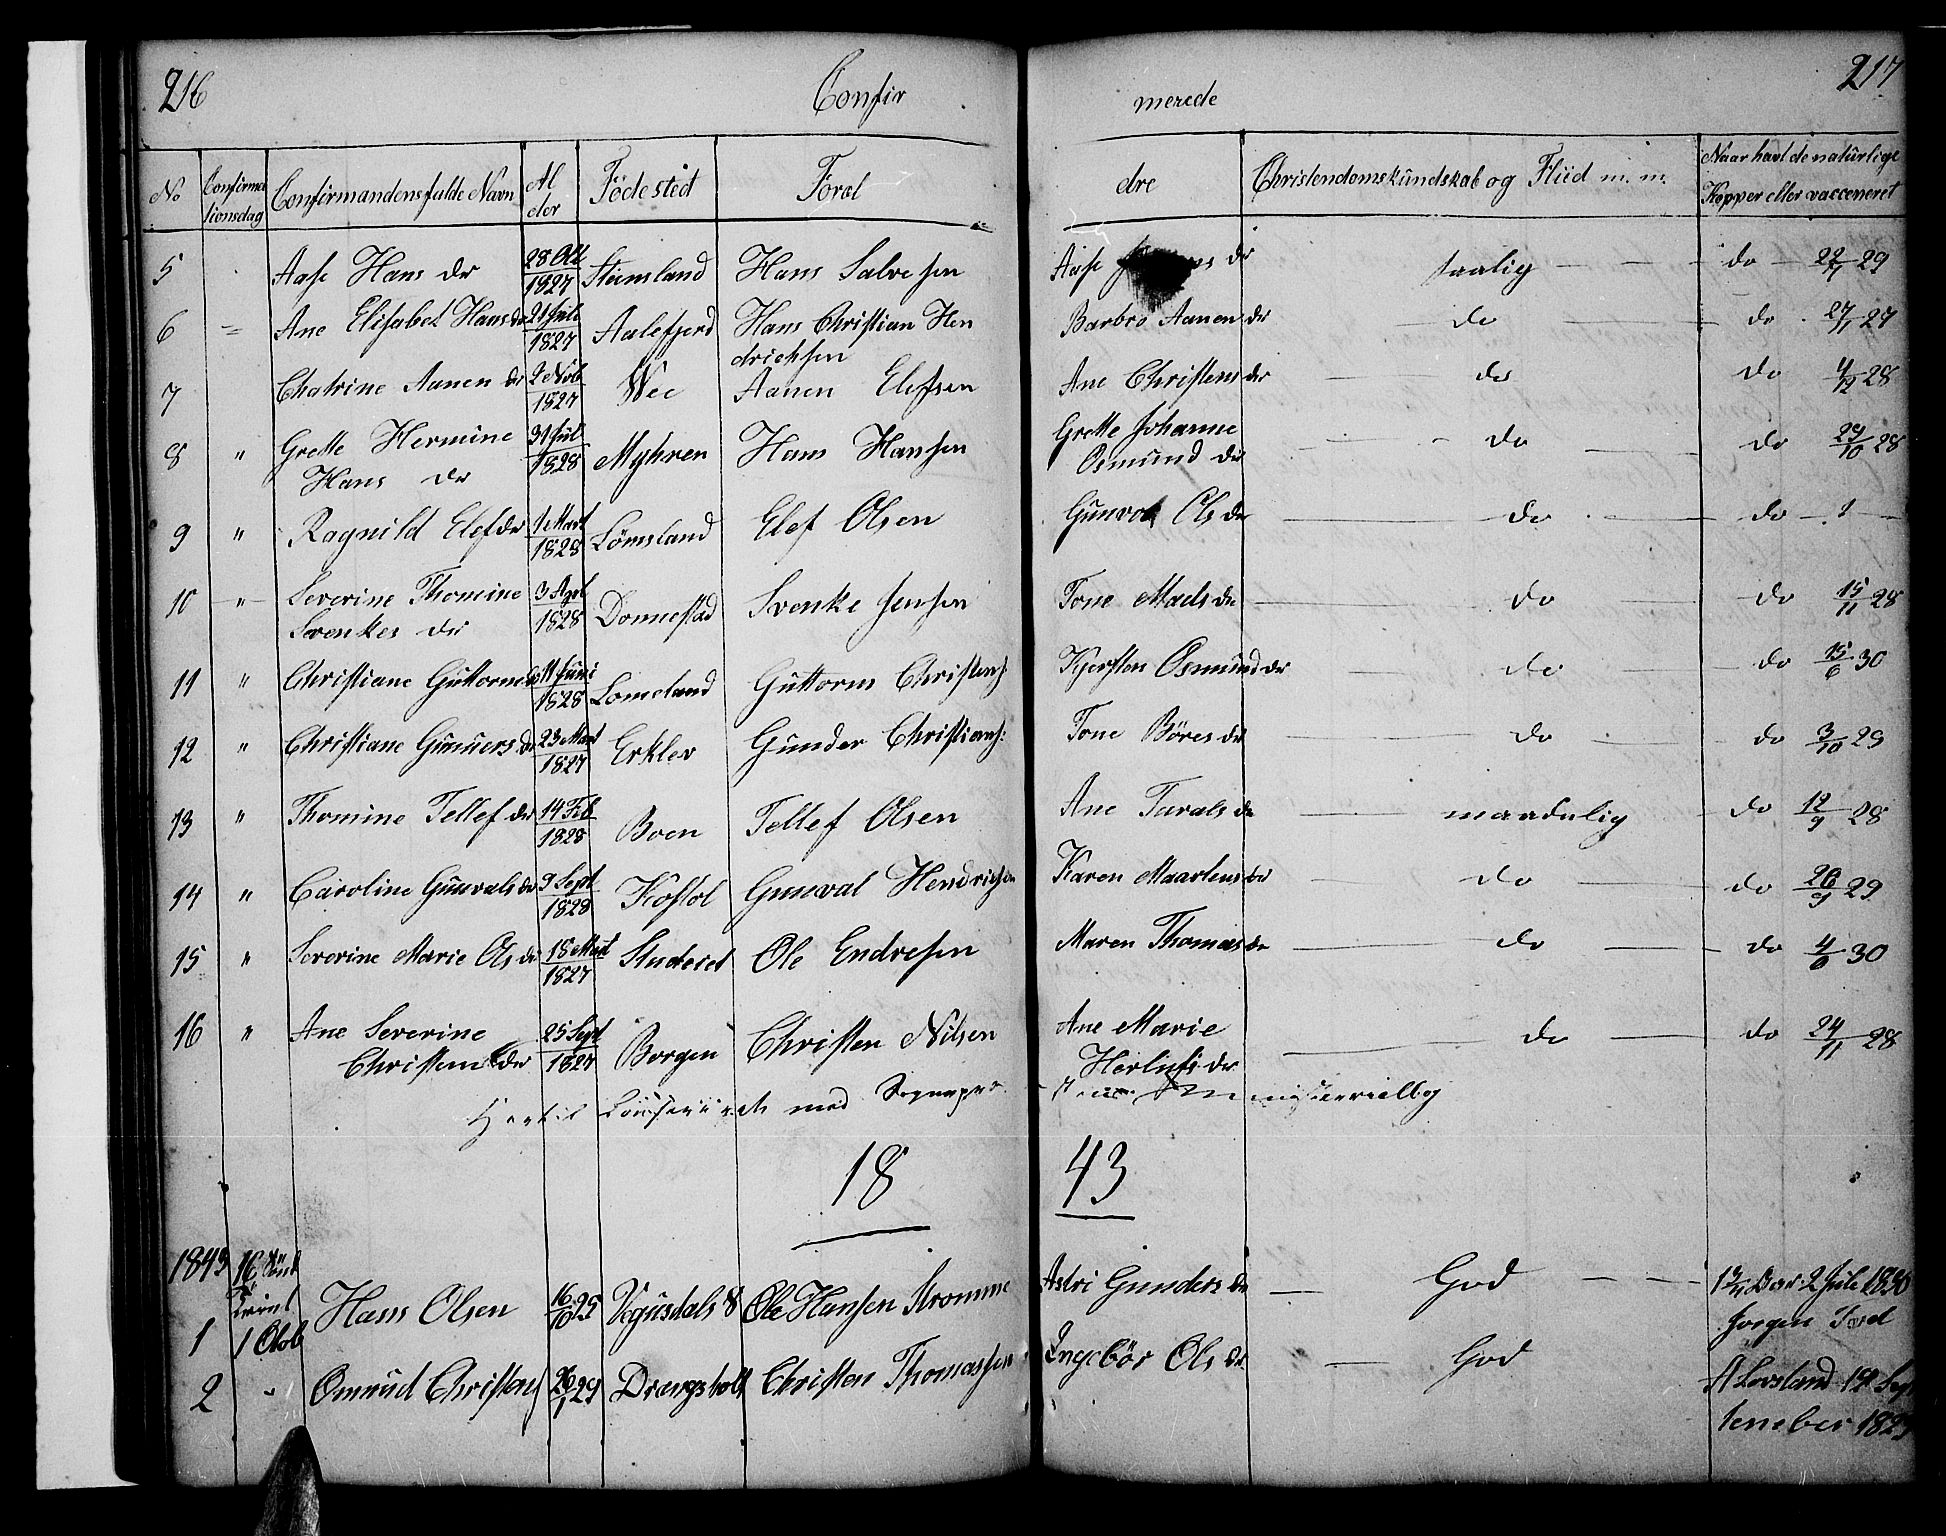 216 Confir merede 217
No Confirma tionsdag Confirmandens fulde Navn Al der Födested Forœl dre Christendomskundskab og Fliid m. m. Naar havt de naturlige Kopper eller vacceneret
5 Aase Hans dr 28 Okt 1827 Steensland Hans Salvesen Aase dr taalig do 29
6 Ane Elisabet Hans dr 21 Juli 1827 Aalefjerd Hans Christian Hen drichsen Barbro Aanen dr do do 27/1 27
7 Chatrine Aanen dr 2 Nob 1827 Wee Aanen Elefsen Ane Christens dr do do 4/12 28
8 " Grette Hermine Hans dr 31 Jul 1828 Myhren Hans Hansen Grette Johanne Osmund dr do do 29/10 28
9 " Ragnild Elef dr 1 Mart 1828 Lömsland Elef Olsen Gunvor Ols dr do do
10 " Severine Thomine Svenkes dr 3 Apl 1828 Donnestad Svenke Jensen Tone Mads dr do do 15/11 28
11 " Christiane Guttorms dr 11 Juni 1828 Lomeland Guttorm Christens Kjersten Osmund dr do do 15/6 30
12 " Christiane Gunners dr 23 Mart 1827 Erklev Gunder Christians: Tone Böres dr do do 3/10 29
13 " Thomine Tellef dr 14 Feb 1828 Boen Tellef Olsen Ane Tarals dr maadelig do 12/9 28
14 " Caroline Gunvals dr 9 Sept 1828 Kostöl Gunval Hendrichsen Karen Maartens dr do do 26/9 29
15 " Severine Marie Ols dr 18 Mart 1827 Studeied Ole Endresen Maren Thomas dr do do 4/6 30
16 " Ane Severine Christens dr 25 Sept 1827 Borgen Christen Nilsen Ane Marie Herlufs dr do do 24/11 28
Hertil med
18 43
1843 16 Sönd Trinit
1 1 Octob Hans Olsen 16/10 25 Vegusdals Ole Hansen Stromme Astri Gunders dr God 2 Juli 1830
2 " Omund Christens 26/1 29 Drangsholt Christen Thomassen Ingebör Ols dr God A Lovsland 19 Sep tember 1829